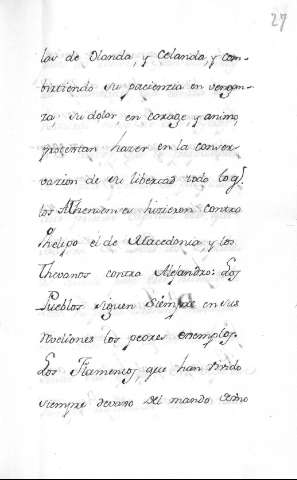 27
las de Olanda, y Celanda, y com-
birtiendo su paciencia en vengan-
za, su dolor, en corage y animo,
protestan hazer en la conser-
vazion de su libertad todo lo q.
los Athenienses hizieron contra
Phelipo el de Macedonia, y los
Thevanos contra Alejandro: Los
Pueblos siguen siempre en sus
reveliones los peores exemplos.
Los Flamencos, que han vivido
siempre devaxo del mando